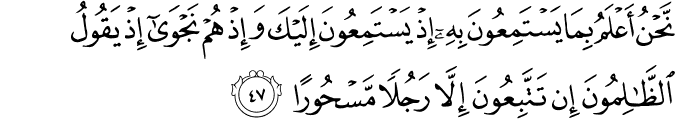 نَّحْنُ أَعْلَمُ بِمَا يَسْتَمِعُونَ بِهِۦٓ إِذْ يَسْتَمِعُونَ إِلَيْكَ وَإِذْ هُمْ نَجْوَىٰٓ إِذْ يَقُولُ
ٱلظَّٰلِمُونَ إِن تَتَّبِعُونَ إِلَّا رَجُلًا مَّسْحُورًا ٤٧